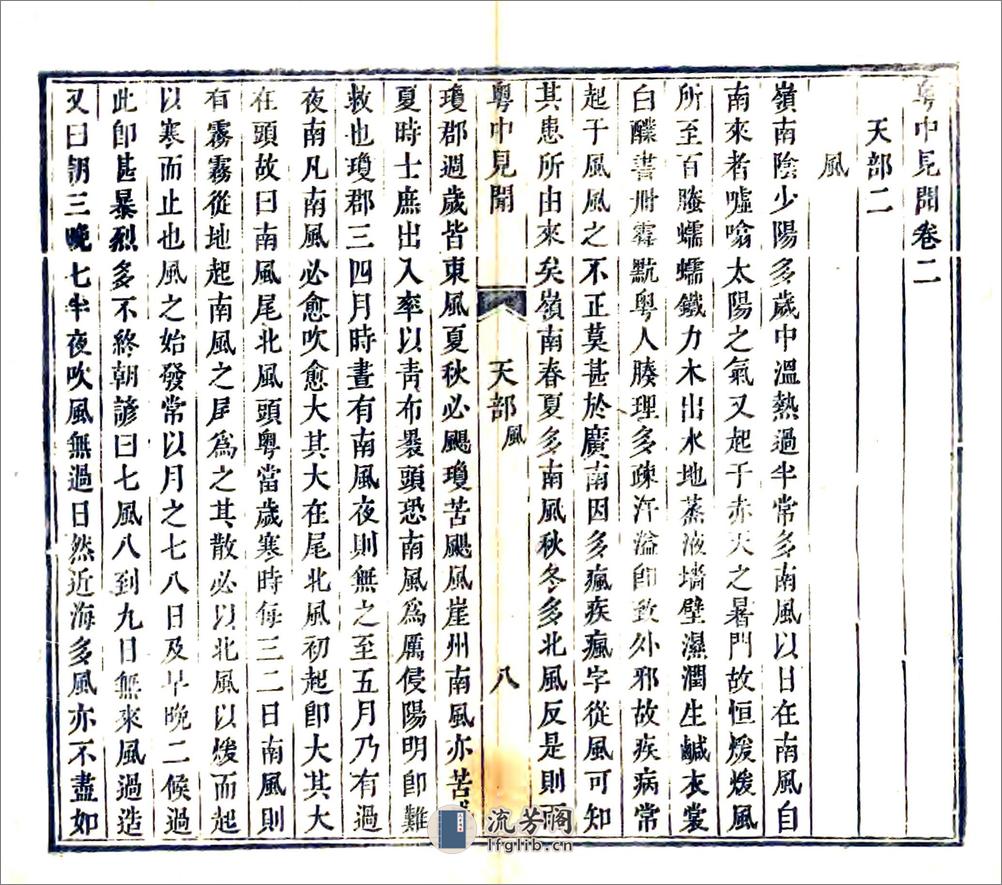 粵中見聞卷二
天部二
風
嶺南陰少陽多歲中溫熱過半常多南風以日在南風自
南來者噓噏太陽之氣又起于赤天之暑門故恒煖煖風
所至百螣蠕蠕鐵力木出水地蒸液墻壁濕潤生鹹衣裳
白醭書冊霉黖粵人腠理多疎汗溢卽致外邪故疾病常
起于風風之不正莫甚於廣南因多瘋疾瘋字從風可知
其患所由來矣嶺南春夏多南風秋冬多北風反是則
粵中見聞 天部 風 八
瓊郡週歲皆東風夏秋必颶瓊苦颶風崖州南風亦苦
夏時士庶出入率以青布裹頭恐南風爲厲侵陽明卽難
救也瓊郡三四月時晝有南風夜則無之至五月乃有過
夜南凡南風必愈吹愈大其大在尾北風初起卽大其大
在頭故曰南風尾北風頭粵當歲寒時每三二日南風則
有霧霧從地起南風之尾爲之其散必以北風以煖而起
以寒而止也風之始發常以月之七八日及早晚二候過
此卽甚暴烈多不終朝諺曰七風八到九日無來風過造
又曰朝三晚七半夜吹風無過日然近海多風亦不盡如
流芳阁
lfglib.cn